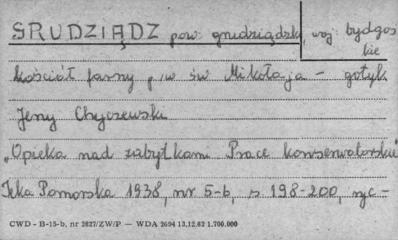 GRUDZIĄDZ pow. grudziądzki, woj. bydgoskie
kościół farny p/w św Mikołaja - gotyk
Jerzy Chyczewski
„Opieka nad zabytkami Prace konserwatorskie"
Teka Pomorska 1938, nr 5-6, s. 198-200, ryc-
CWD - B-15-b, nr 2827/ZW/P — WDA 2694 13.12.62 1.700.000